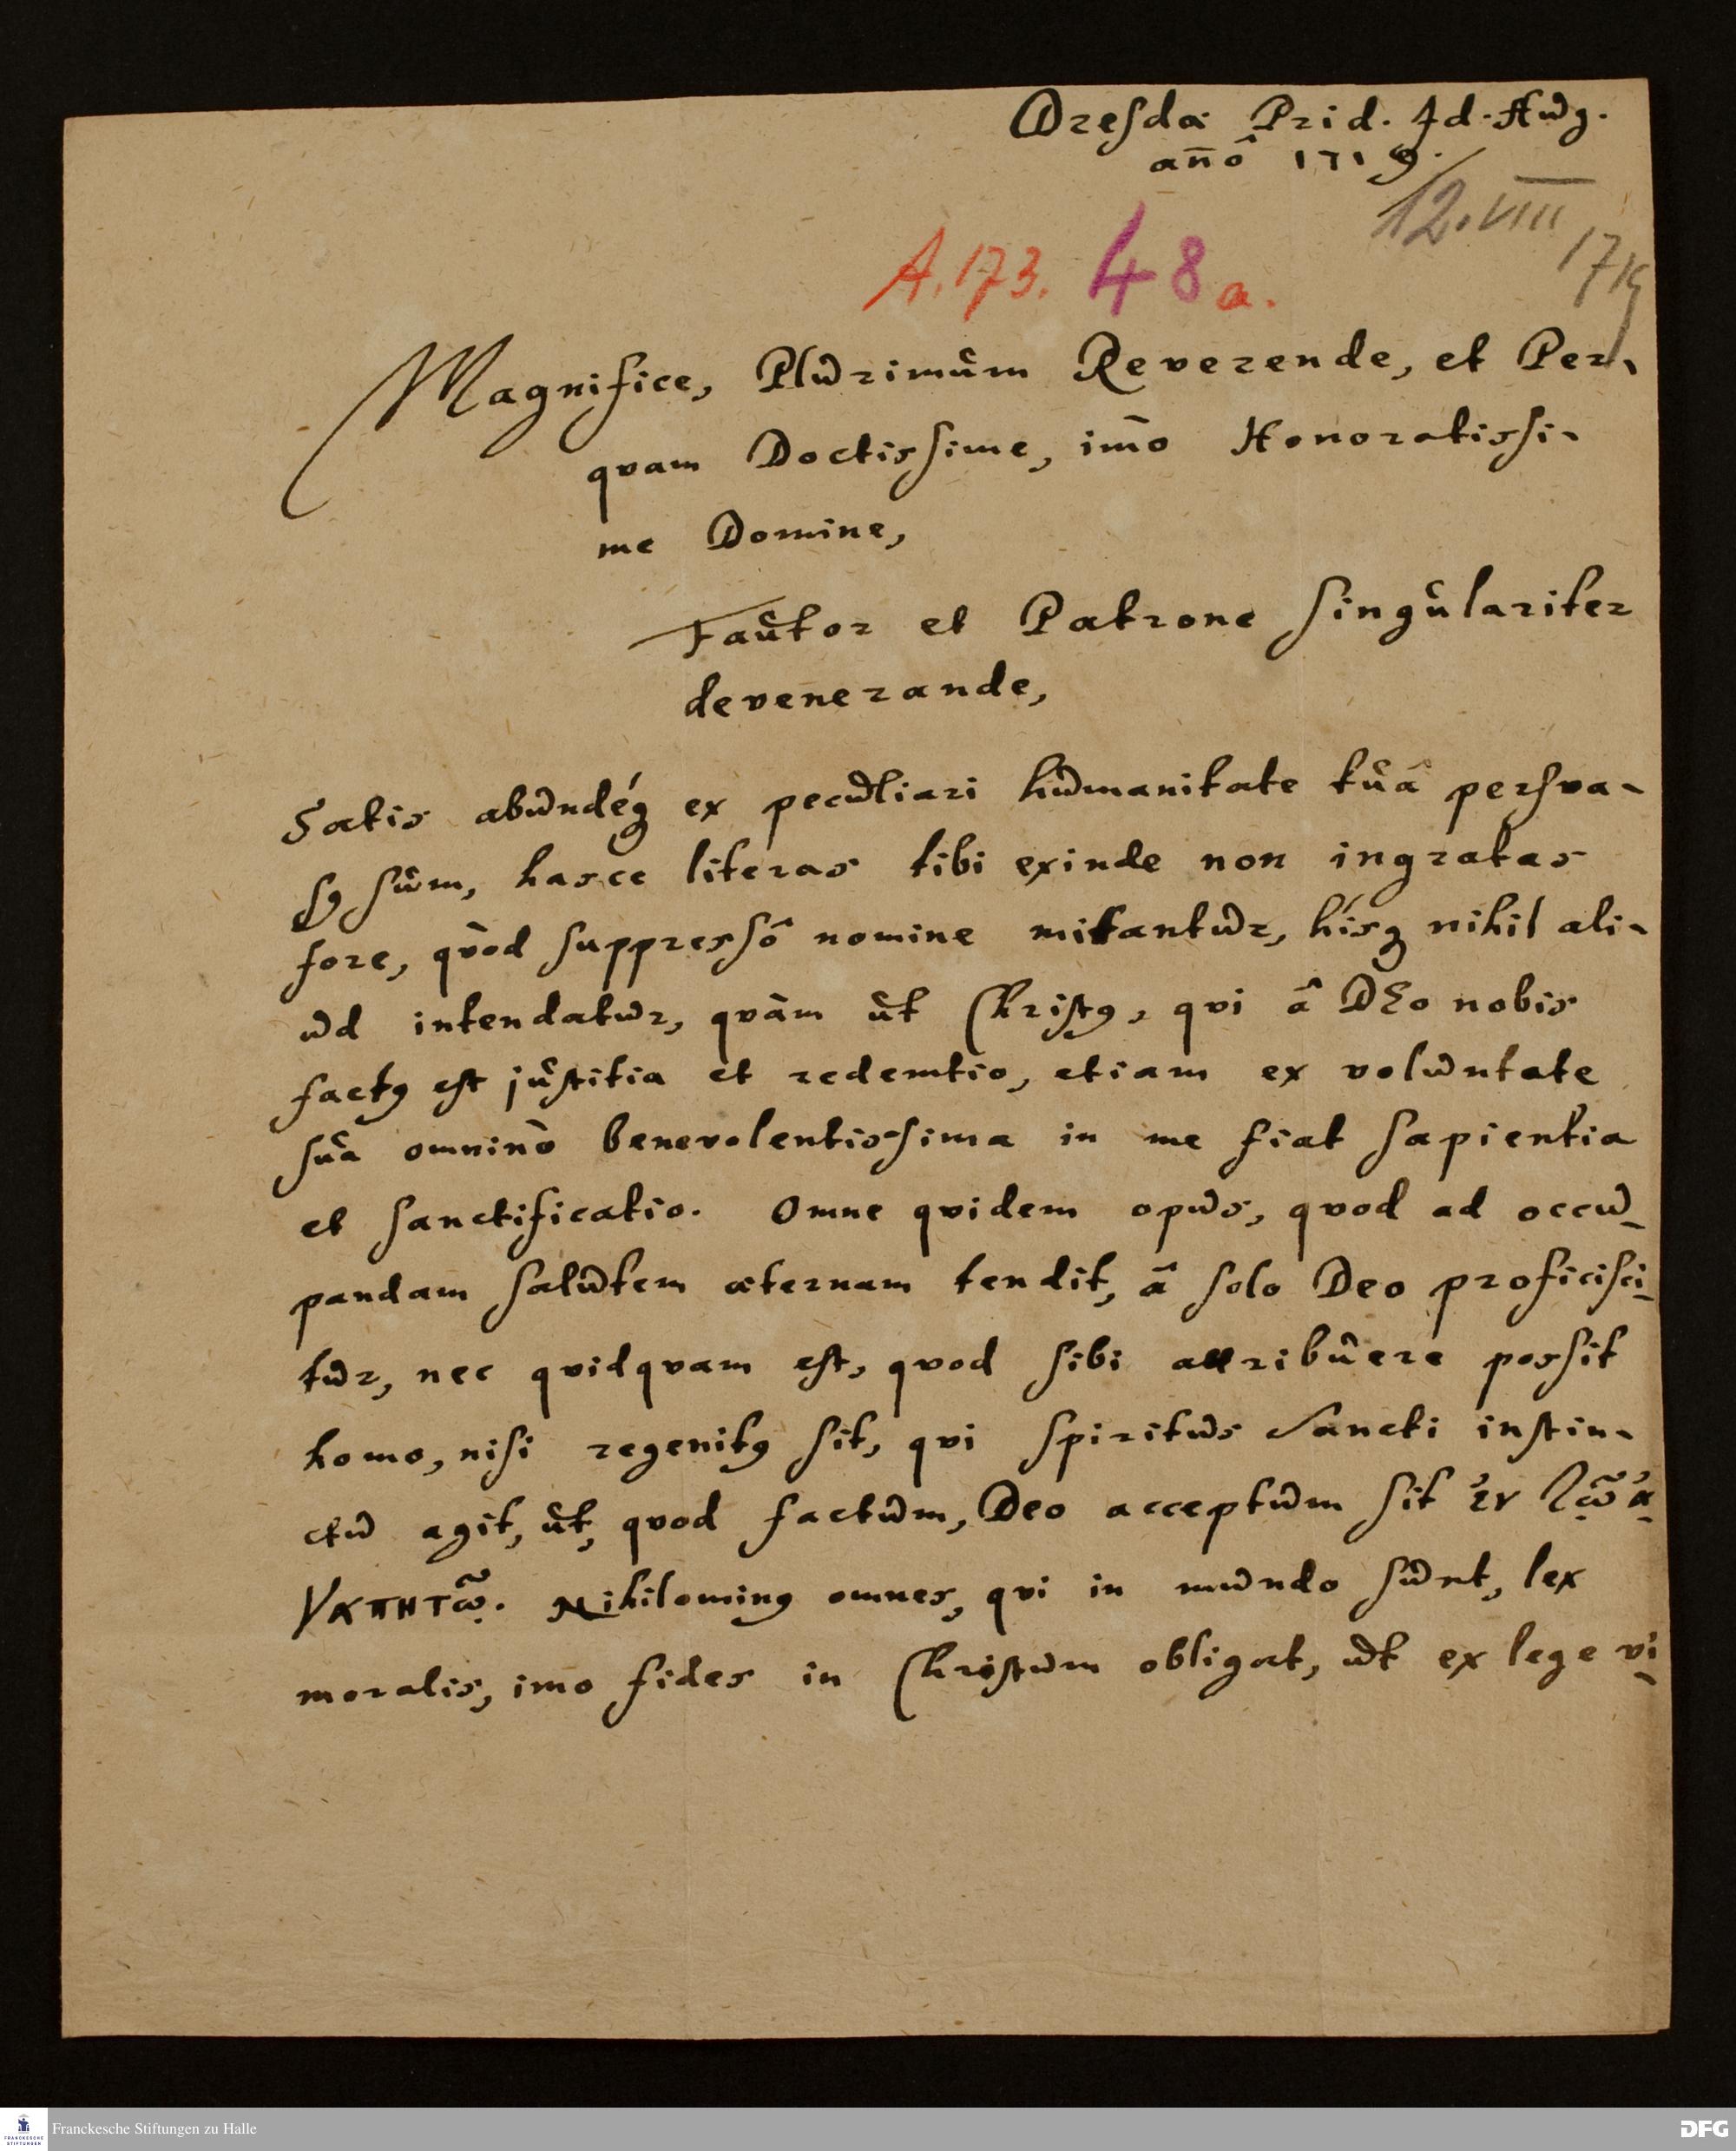 Dresda Prid. Id. Aug.
an̄ô 1719.
12. VIII
1719
A. 173. 48 a.
Magnifice, Plurimûm Reverende, et Per-
quam Doctissime, im̄o Honoratissi-
me Domine,
Faûtor et Patrone singûlariter
devenerande,
Satis abundéq́ꝫ ex peculiari humanitate tûâ persva-
sꝰ sûm, hasce literas tibi exinde non ingratas
fore, qvòd suppressô nomine mittantur, hísqꝫ nihil ali-
ud intendatur, qvàm ût Christꝰ, qvi â DEo nobis
factꝰ est jûstitia et redemtio, etiam ex voluntate
sûa omninò benevolentissima in me fiat sapientia
et sanctificatio. Omne qvidem opus, qvod ad occu-
pandam salutem æternam tendit, â solo Deo proficisci-
tur, nec qvidqvam est, qvod sibi attribûere possit
homo, nisi regenitꝰ sit, qvi Spiritus Sancti instin-
ctu agit, ût, qvod factum, Deo acceptum sit ἐν τῷ ἀ-
γαπητῷ. Nihilominꝰ omnes, qvi in mundo sûnt, lex
moralis, imo fides in Christum obligat, ut ex lege vi-
Franckesche Stiftungen zu Halle
FRANCKESCHE
STIFTUNGEN
DFG